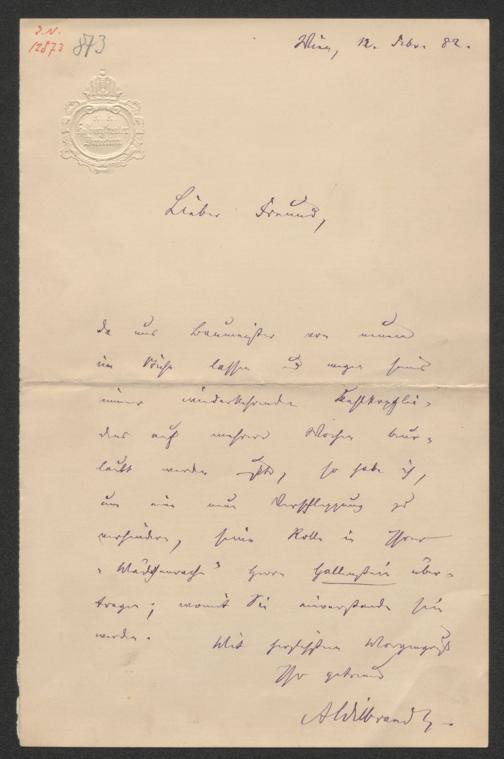 I. N.
12873
873
Wien, 12. Febr. 82.
Lieber Freund,
da uns Baumeister von neuem
im Stiche lassen und wegen seines
immer wiederkehrenden Kehlkopflei-
dens auf mehrere Wochen beur-
laubt werden mußte, so habe ich,
um eine neue Verschleppung zu
verhindern, seine Rolle in Ihrer
"Mädchenrache" Herrn Hallenstein über-
tragen; womit Sie einverstanden sein
werden.
Mit herzlichstem Morgengruß
Ihr getreuer
AWilbrandt.